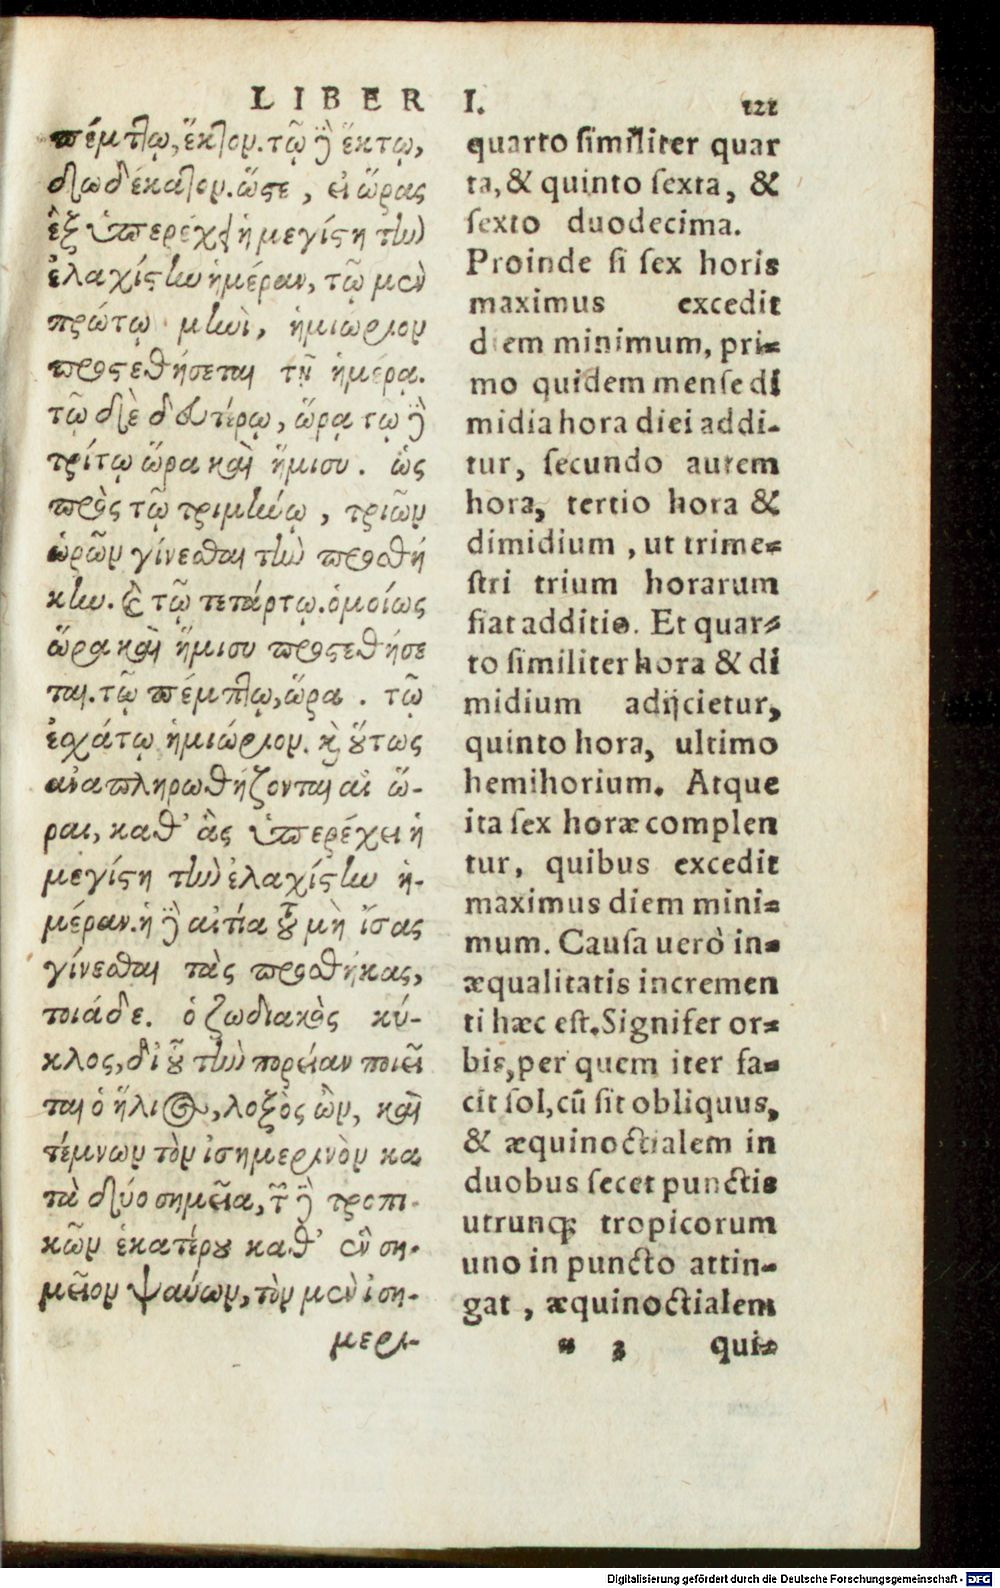 LIBER I. 121
πέμπτῳ, ἕκτον. τῷ δὲ ἕκτῳ,
δωδέκατον. ὥστε, εἰ ὥρας
ἓξ ὑπερέχει ἡ μεγίστη τὴν
ἐλαχίστην ἡμέραν, τῷ μὲν
πρώτῳ μηνὶ, ἡμιώριον
προστεθήσεται τῇ ἡμέρᾳ.
τῷ δὲ δευτέρῳ, ὥρα τῷ δὲ
τρίτῳ ὥρα καὶ ἥμισυ. ὡς
πρὸς τῷ τριμήνῳ, τριῶν
ὡρῶν γίνεσθαι τὴν προσθή
κην. καὶ τῷ τετάρτῳ. ὁμοίως
ὥρα καὶ ἥμισυ προστεθήσε
ται. τῷ πέμπτῳ, ὥρα. τῷ
ἐσχάτῳ ἡμιώριον. καὶ οὕτως
ἀναπληρωθήζονται αἱ ὧ-
ραι, καθ' ἃς ὑπερέχει ἡ
μεγίστη τὴν ἐλαχίστην ἡ-
μέραν. ἡ δὲ αἰτία τοῦ μὴ ἴσας
γίνεσθαι τὰς προσθήκας,
τοιάδε. ὁ ζωδιακὸς κύ-
κλος, δι' οὗ τὴν πορείαν ποιεῖ
ται ὁ ἥλιος, λοξὸς ὢν, καὶ
τέμνων τὸν ἰσημερινὸν κα
τὰ δύο σημεῖα, τῶν δὲ τροπι-
κῶν ἑκατέρου καθ' ἓν ση-
μεῖον ψαύων, τὸν μὲν ἰση-
μερι-
quarto similiter quar
ta, & quinto sexta, &
sexto duodecima.
Proinde si sex horis
maximus excedit
diem minimum, pri-
mo quidem mense di
midia hora diei addi-
tur, secundo autem
hora, tertio hora &
dimidium, ut trime-
stri trium horarum
fiat additio. Et quar-
to similiter hora & di
midium adijcietur,
quinto hora, ultimo
hemihorium. Atque
ita sex horæ complen
tur, quibus excedit
maximus diem mini-
mum. Causa uerò in-
æqualitatis incremen
ti hæc est. Signifer or-
bis, per quem iter fa-
cit sol, cū sit obliquus,
& æquinoctialem in
duobus secet punctis
utrunq; tropicorum
uno in puncto attin-
gat, æquinoctialem
3 qui-
Digitalisierung gefördert durch die Deutsche Forschungsgemeinschaft - DFG